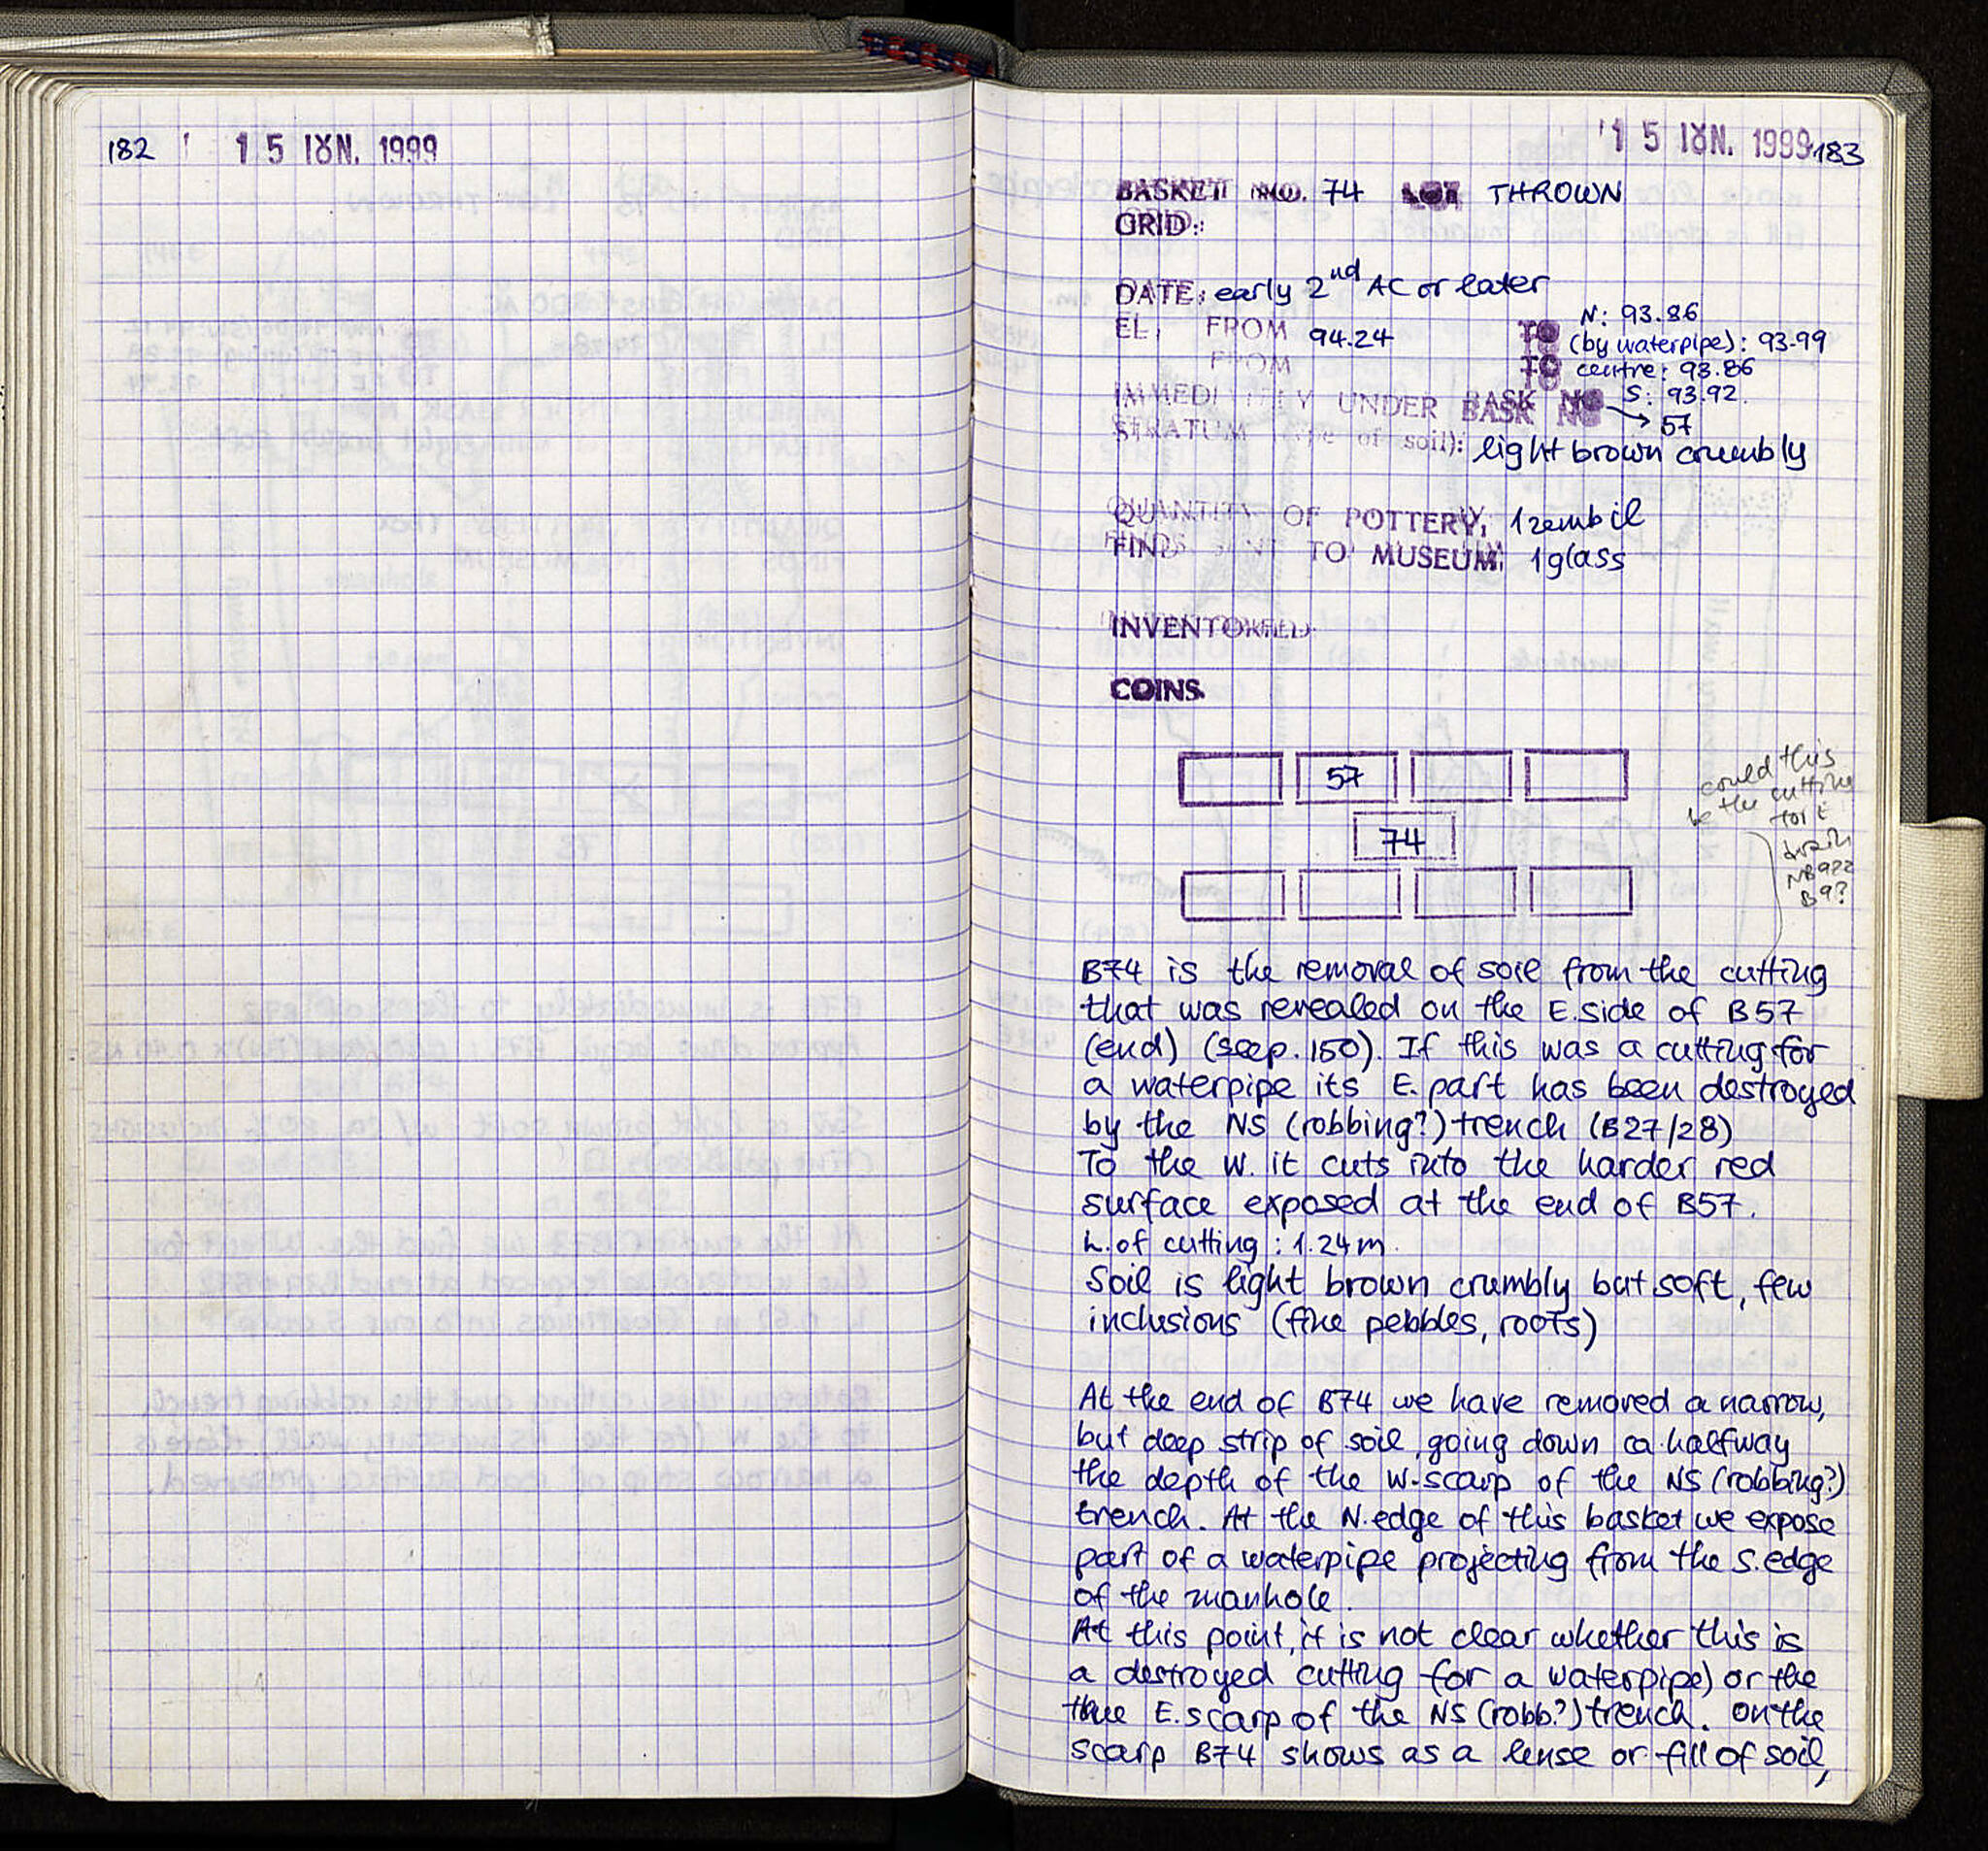 182 15 ΙΟΥΝ. 1999
15 ΙΟΥΝ. 1999 183
BASKET NO. 74 LOT THROWN
GRID:
DATE: early 2nd AC or later
EL, FROM 94.24 TO N: 93.86
(by waterpipe): 93.99
FROM TO centre: 93.86
S: 93.92.
IMMEDI TELY UNDER BASK NO → 57
STRATUM (type of soil): light brown crumbly
QUANTITY OF POTTERY, 1 zembil
FINDS SENT TO MUSEUM: 1 glass
INVENTORIED:
COINS.
57
74
could this
be the cutting
for t
drain
NB922
B9?
B74 is the removal of soil from the cutting
that was revealed on the E. side of B57
(end) (see p. 150). If this was a cutting for
a waterpipe its E. part has been destroyed
by the NS (robbing?) trench (B27/28)
To the W. it cuts into the harder red
surface exposed at the end of B57.
L. of cutting: 1.24 m.
Soil is light brown crumbly but soft, few
inclusions (fine pebbles, roots)
At the end of B74 we have removed a narrow,
but deep strip of soil, going down ca. halfway
the depth of the W-scarp of the NS (robbing?)
trench. At the N. edge of this basket we expose
part of a waterpipe projecting from the S. edge
of the manhole.
At this point, it is not clear whether this is
a destroyed cutting for a waterpipe) or the
true E. scarp of the NS (robb.?) trench. On the
scarp B74 shows as a lense or fill of soil,